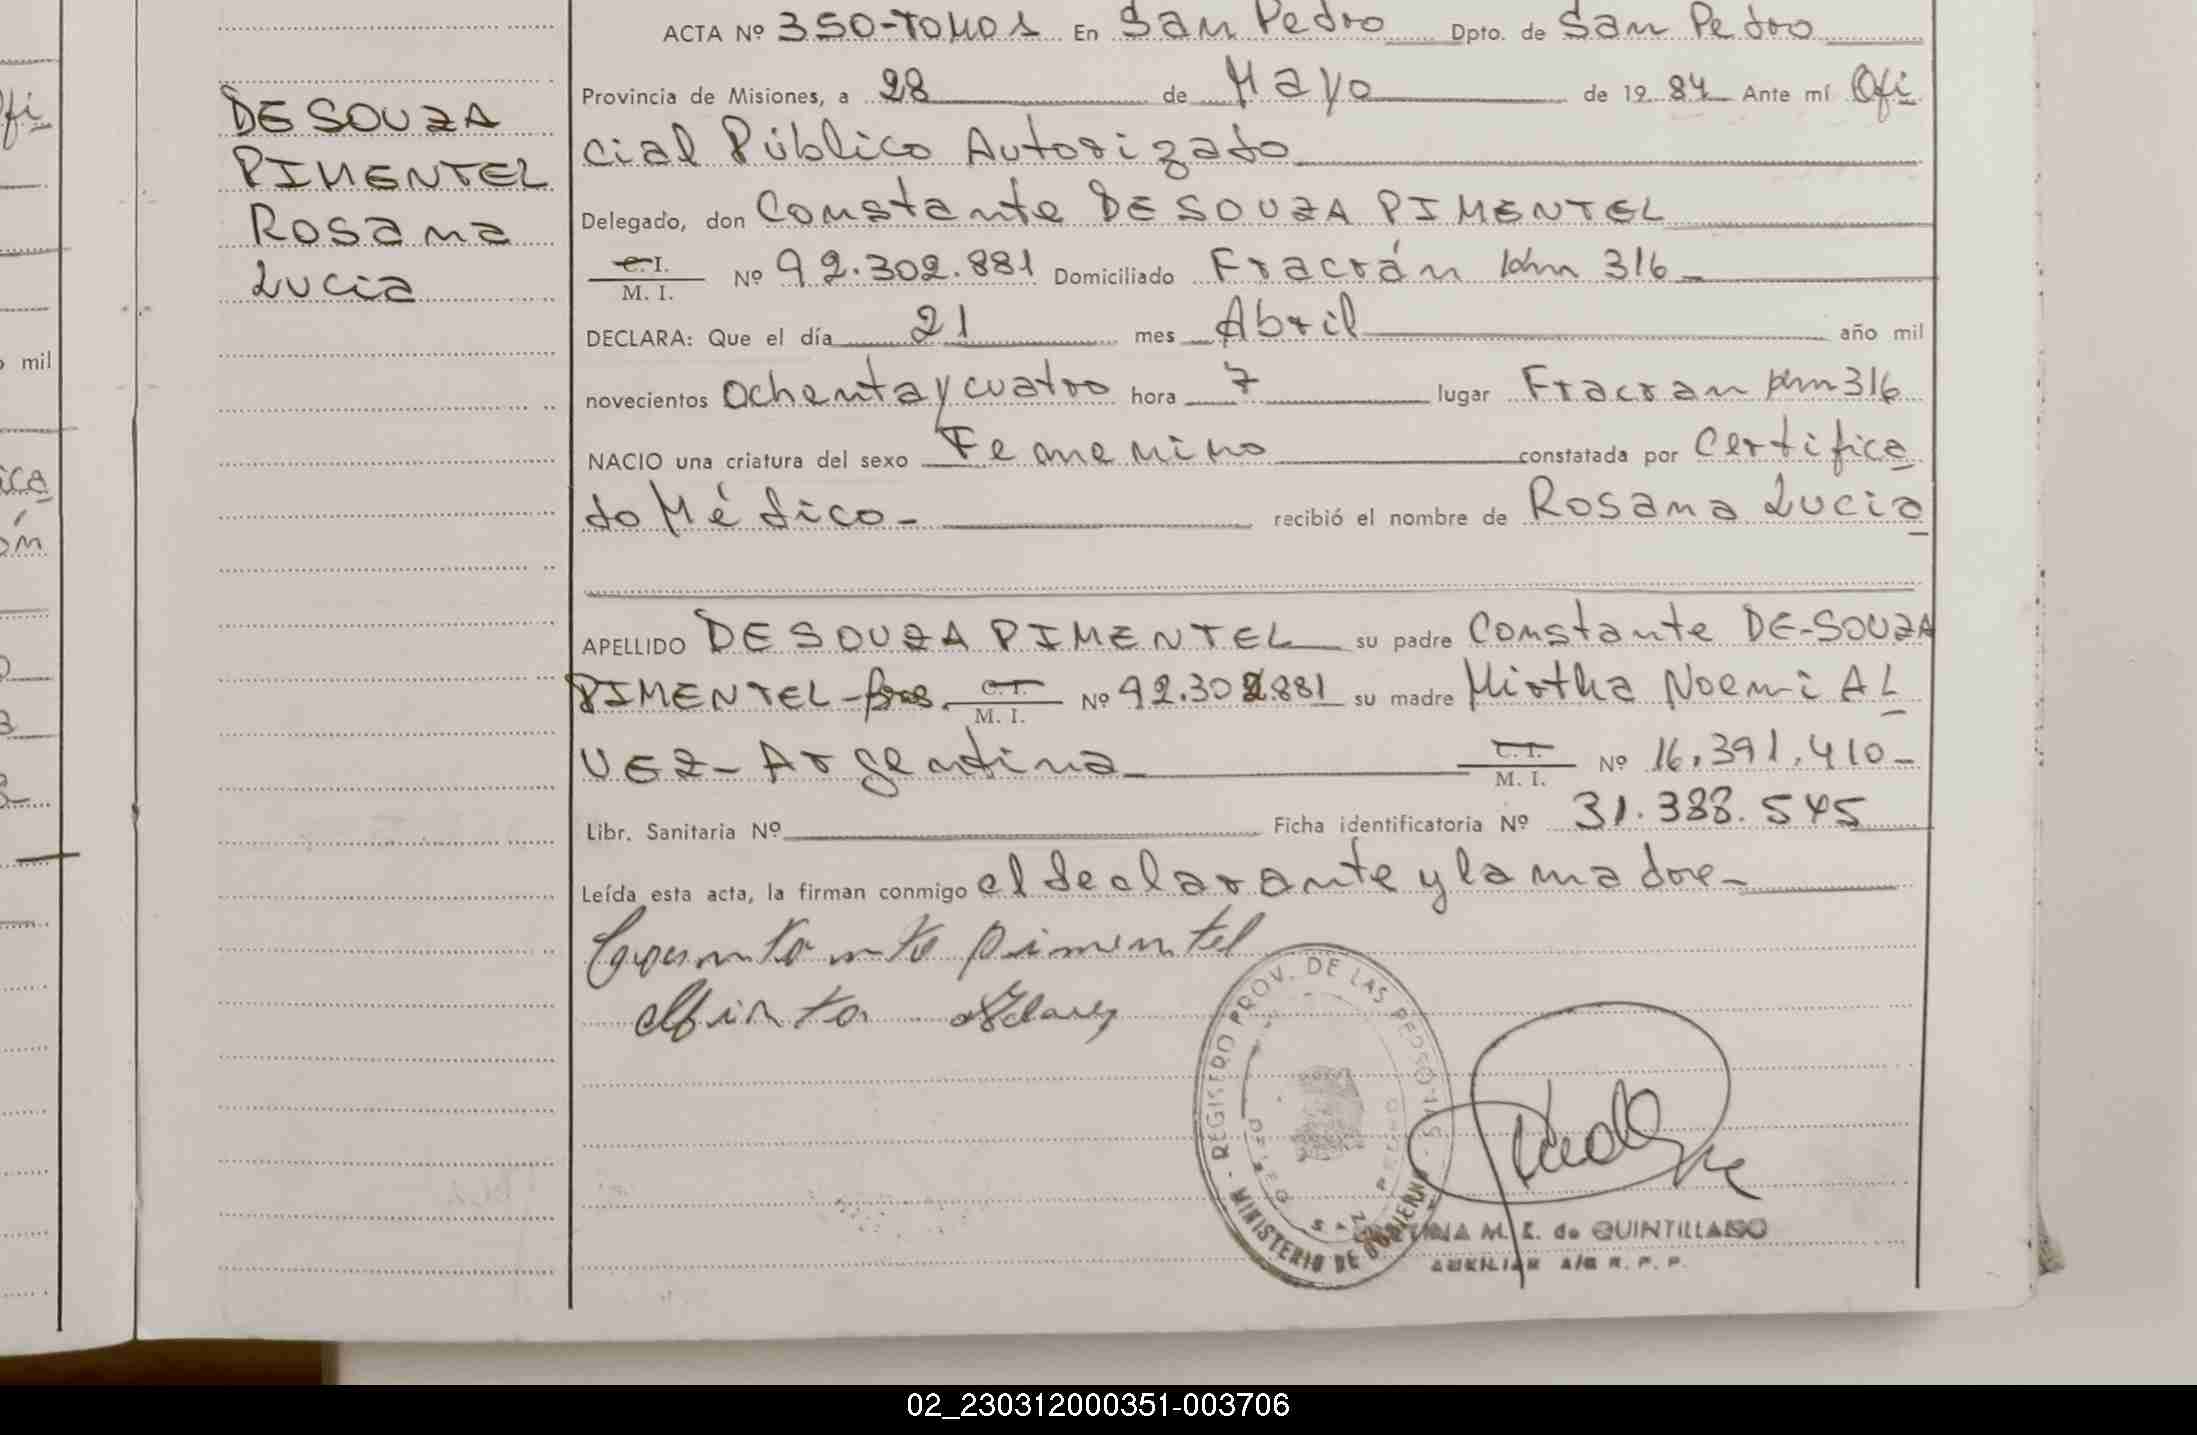 ACTA Nº 350-TOMO 1 En San Pedro Dpto. de San Pedro
DE SOUZA
PIMENTEL
Rosana
Lucia
Provincia de Misiones, a 28 de Mayo de 19 84 Ante mí Ofi
cial Público Autorizado
Delegado, don Constante DE SOUZA PIMENTEL
C. I.
M. I. Nº 92.302.881 Domiciliado Fracrán km 316
DECLARA: Que el día 21 mes Abril año mil
novecientos ochenta y cuatro hora 7 lugar Fracran km 316
NACIO una criatura del sexo Femenino constatada por Certifica
do Médico- recibió el nombre de Rosana Lucia
APELLIDO DE SOUZA PIMENTEL su padre Constante DE-SOUZA
PIMENTEL-bras. C. I.
M. I. Nº 92.302.881 su madre Mirtha Noemi AL
VEZ- Argentina C. I.
M. I. Nº 16.391.410-
Libr. Sanitaria Nº Ficha identificatoria Nº 31.388.545
Leída esta acta, la firman conmigo el declarante y la madre-
Pimentel
REGISTRO PROV. DE LAS PERSONAS
MINISTERIO DE GOBIERNO
M. E. de QUINTILLANO
AUXILIAR A/C R. P. P.
ica
mil
02_230312000351-003706